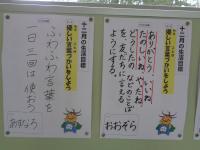 十二月の生活目標
優しい言葉づかいをしよう
ふわふわ言葉を
一日三回は使おう
あすなろ
十二月の生活目標
優しい言葉づかいをしよう
ありがとう、いいね
たのしいね、
どうしたの などのことば
を友だちに言える
ようにする。
おおぞら